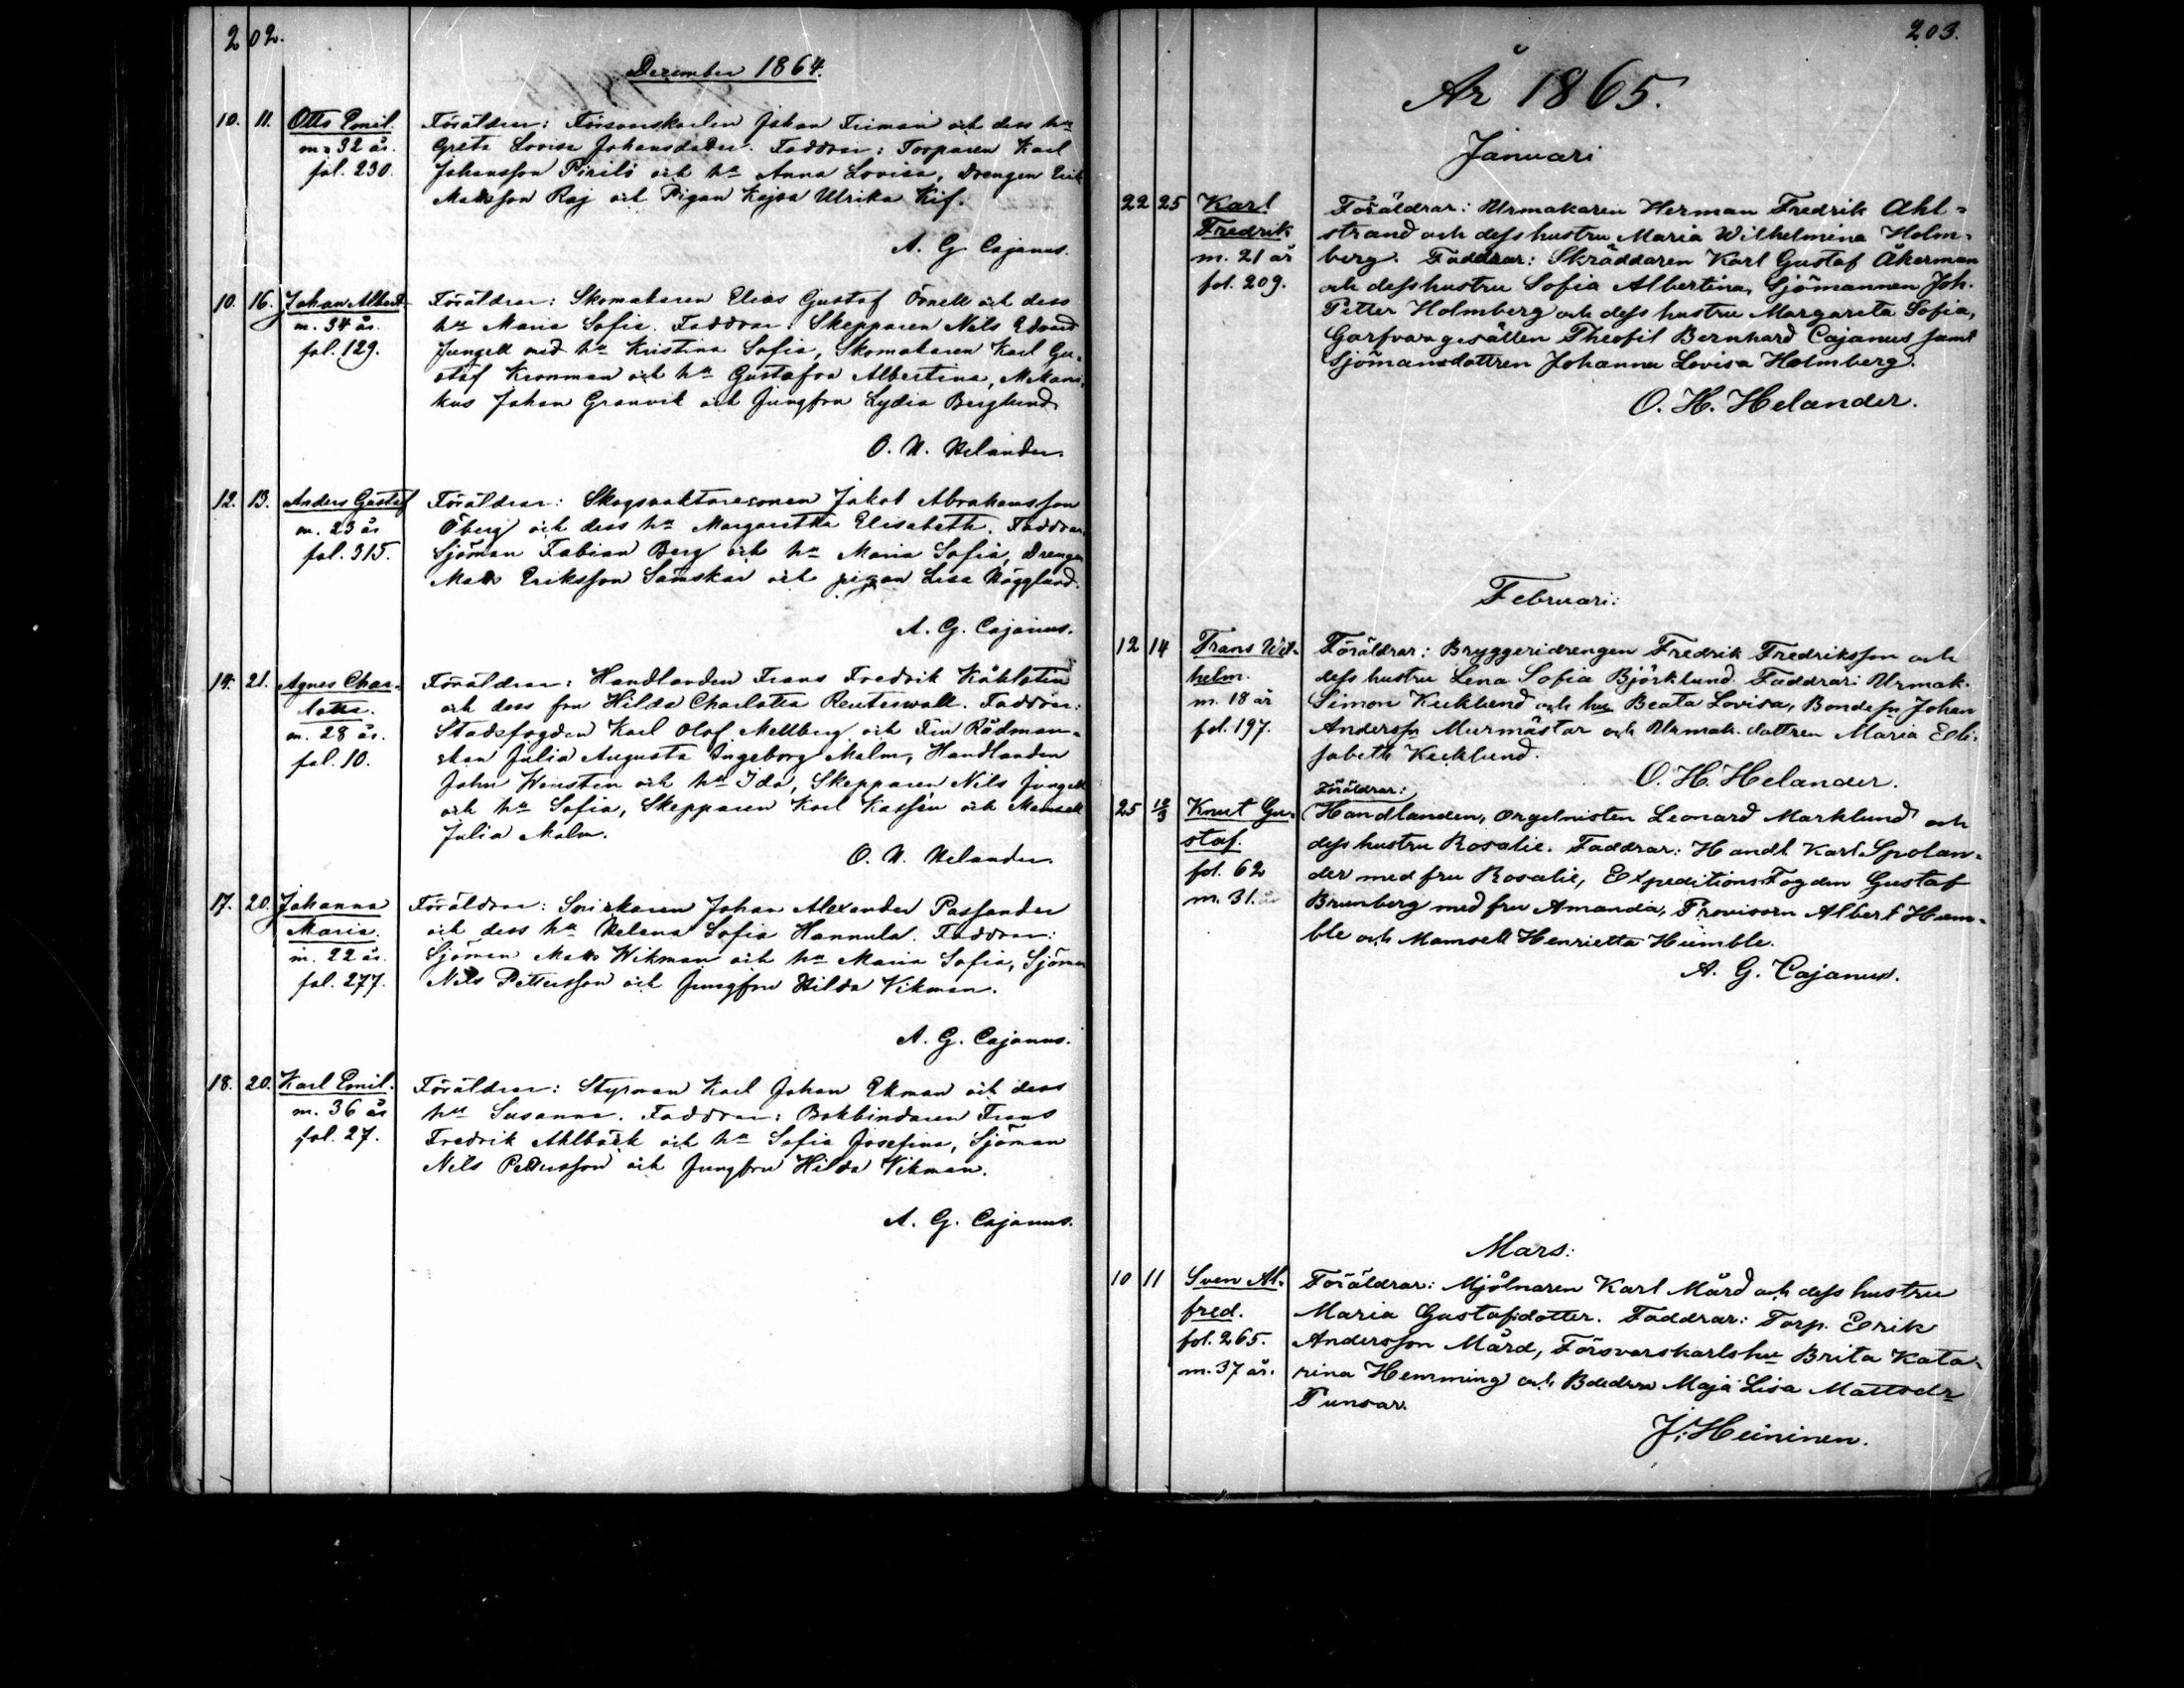 202.
December 1864.
10. 11. Otto Emil. Föräldrar: Försvarskarlen Johan Friman och dess hu
m. 32 år. Greta Lovisa Johansdoter. Faddrar: Torparen Karl
fol. 230. Johansson Pirilö och hu Anna Lovisa, Drengen Erik
Matsson Raj och Pigan Kajsa Ulrika Kif.
A. G. Cajanus.
10. 16. Johan Albert. Föräldrar: Skomakaren Elias Gustaf Örnell och dess
m. 34 år. hu Maria Sofia. Faddrar: Skepparen Nils Edvard
fol. 129. Jungell med hu Kristina Sofia, Skomakaren Karl Gu-
staf Kronman och hu Gustafva Albertina, Mekani-
kus Johan Granvik och Jungfru Lydia Berglund.
O. H. Helander.
12. 13. Anders Gustaf Föräldrar: Skogsvaktaresonen Jakob Abrahamsson
m. 23 år Öberg och dess hu Margaretha Elisabeth. Faddrar
fol. 315. Sjöman Fabian Berg och hu Maria Sofia, Drengen
Matts Eriksson Sämskär och pigan Lisa Hägglund.
A. G. Cajanus.
14. 21. Agnes Char- Föräldrar: Handlanden Frans Fredrik Kåhlström
lotta. och dess fru Hilda Charlotta Reuterwall. Faddrar:
m. 28 år. Stadsfogden Karl Olof Mellberg och Fru Rådman-
fol. 10. skan Julia Augusta Ingeborg Malm, Handlanden
John Wensten och hu Ida, Skepparen Nils Jungell
och hu Sofia, Skepparen Karl Kassén och Mamsell
Julia Malm.
O. H. Helander.
17. 20. Johanna Föräldrar: Johan Alexander Passander
Maria. och dess hu Helena Sofia Hannula. Faddrar:
m. 22 år. Sjöman Matts Wikman och hu Maria Sofia, Sjöman
fol. 277. Nils Pettersson och Jungfru Hilda Vikman.
A. G. Cajanus.
18. 20. Karl Emil. Föräldrar: Styrman Karl Johan Ekman och dess
m. 36 år hu Susanna. Faddrar: Bokbindaren Frans
fol. 27. Fredrik Ahlbäck och hu Sofia Josefina, Sjöman
Nils Pettersson och Jungfru Hilda Vikman.
A. G. Cajanus.
203.
År 1865.
Januari
22 25 Karl Föräldrar: Urmakaren Herman Fredrik Ahl-
Fredrik strand och dess hustru Maria Wilhelmina Holm-
m. 21 år berg. Faddrar: Skräddaren Karl Gustaf Åkerman
fol. 209. och dess hustru Sofia Albertina, Sjömannen Joh.
Petter Holmberg och dess hustru Margareta Sofia,
Garfvaregesällen Theofil Bernhard Cajanus samt
Sjömansdottren Johanna Lovisa Holmberg.
O. H. Helander.
Februari:
12 14 Frans Wil- Föräldrar: Bryggeridrengen Fredrik Fredriksson och
helm. dess hustru Lena Sofia Björklund. Faddrar: Urmak.
m. 18 år Simon Kecklund och hu Beata Lovisa, Bondesn Johan
fol. 197. Anderssn Murmästar och Urmak. dottren Maria Eli-
sabeth Kecklund.
O. H. Helander.
Föräldrar:
25 12/3 Knut Gu- Handlanden, Orgelnisten Leonard Marklund och
staf. dess hustru Rosalie. Faddrar: Handl Karl Spolan-
fol. 62 der med fru Rosalie, Expeditions Fogden Gustaf
m. 31 år Brunberg med fru Amanda, Provisorn Albert Hum-
ble och Mamsell Henrietta Humble.
A. G. Cajanus.
Mars:
10 11 Sven Al- Föräldrar: Mjölnaren Karl Mård och dess hustru
fred. Maria Gustafsdotter. Faddrar: Torp. Erik
fol. 265. Andersson Mård, Försvarskarls hu Brita Kata-
m. 37 år. rina Hemming och Maja Lisa Mattsdr
Punsar.
J. Heininen.